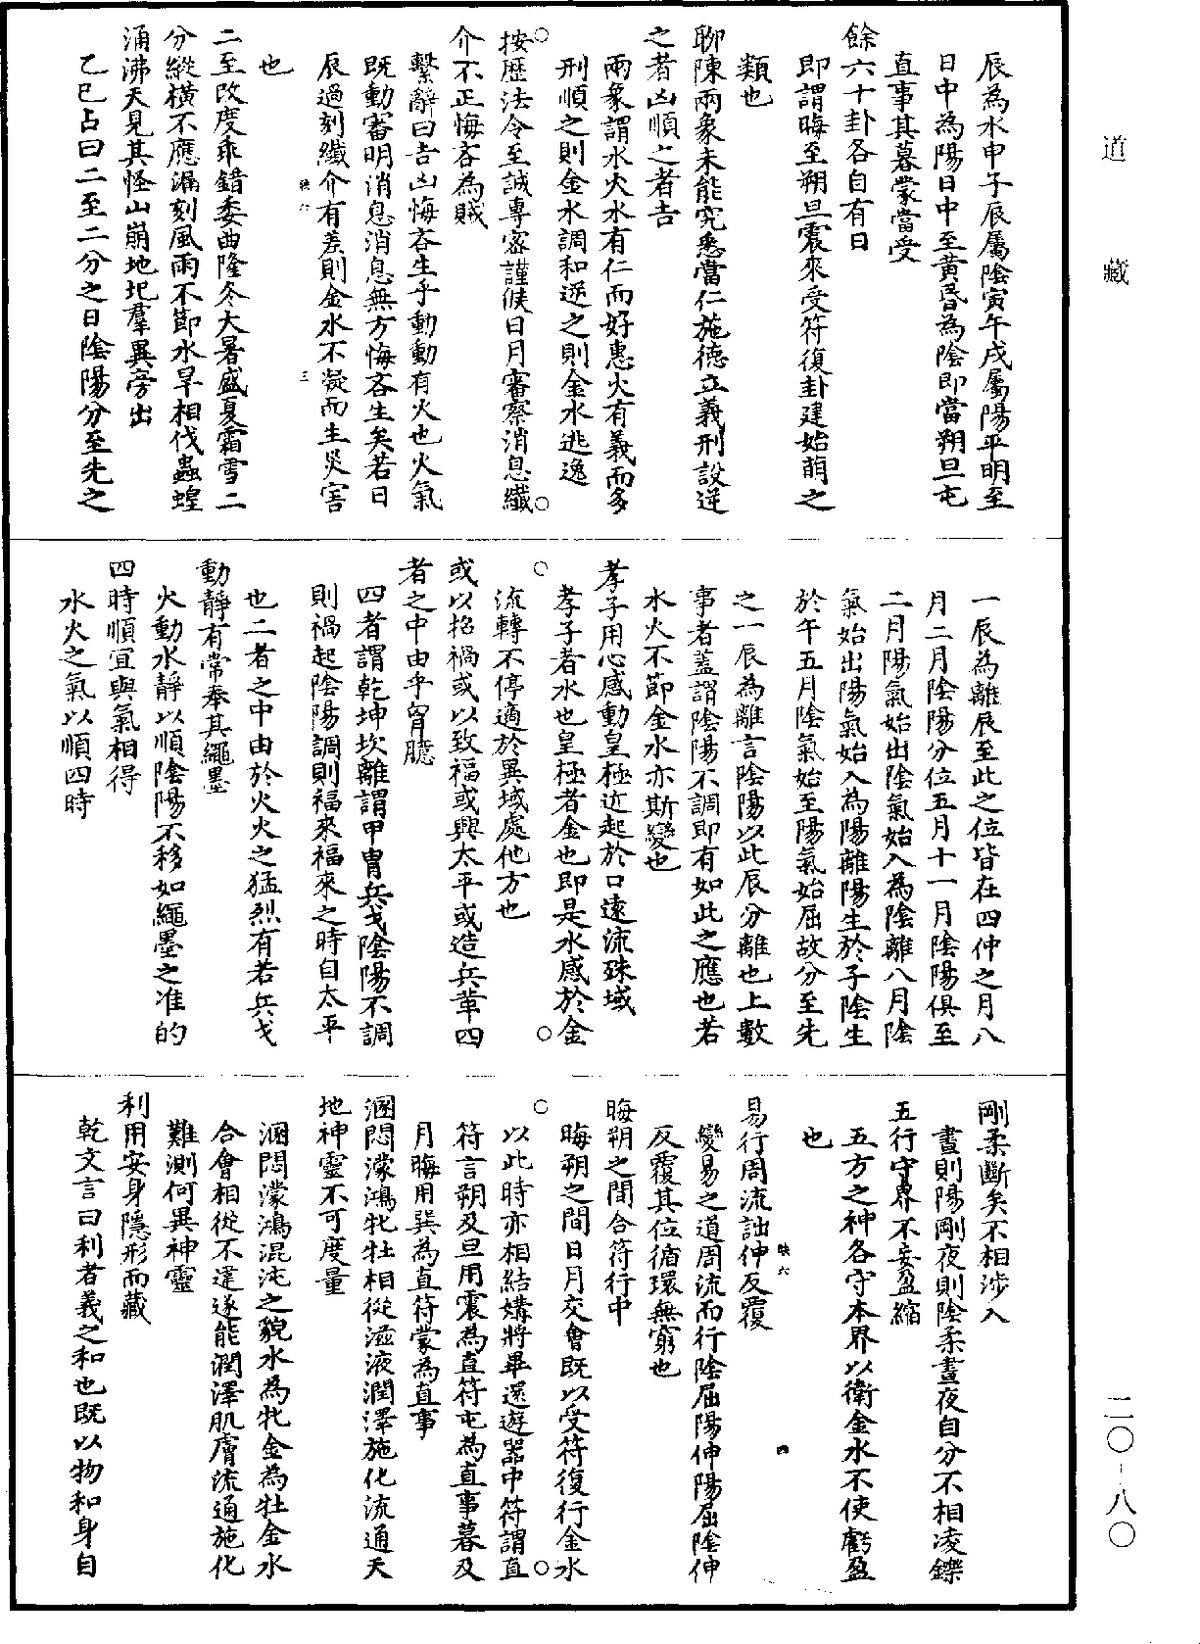 道藏
二〇-八〇
辰為水申子辰屬陰寅午戌屬陽平明至
日中為陽日中至黄昏為陰即當朔旦屯
直事其暮蒙當受
餘六十卦各自有日
即謂晦至朔旦震來受符復卦建始萌之
類也
聊陳兩象未能究悉當仁施德立義刑設逆
之者凶順之者吉
兩象謂水火水有仁而好惠火有義而多
刑順之則金水調和逆之則金水逃逸
按歷法令至誠專密謹候日月審察消息纖
介不正悔吝為賊
繫辭曰吉凶悔吝生乎動動有火也火氣
既動審明消息消息無方悔吝生矣若日
辰過刻纖介有差則金水不凝而生災害
映六
三
也
二至改度乖錯委曲隆冬大暑盛夏霜雪二
分縱橫不應漏刻風雨不節水旱相伐蟲蝗
涌沸天見其怪山崩地圯羣異旁出
乙巳占曰二至二分之日陰陽分至先之
一辰為離辰至此之位皆在四仲之月八
月二月陰陽分位五月十一月陰陽俱至
二月陽氣始出陰氣始入為陰離八月陰
氣始出陽氣始入為陽離陽生於子陰生
於午五月陰氣始至陽氣始屈故分至先
之一辰為離言陰陽以此辰分離也上數
事者蓋謂陰陽不調即有如此之應也若
水火不節金水亦斯變也
孝子用心感動皇極近起於口遠流殊域
孝子者水也皇極者金也即是水感於金
流轉不停適於異域處他方也
或以招禍或以致福或興太平或造兵革四
者之中由乎胷臆
四者謂乾坤坎離謂甲胄兵戈陰陽不調
則禍起陰陽調則福來福來之時自太平
也二者之中由於火火之猛烈有若兵戈
動靜有常奉其繩墨
火動水靜以順陰陽不移如繩墨之准的
四時順宜與氣相得
水火之氣以順四時
剛柔斷矣不相涉入
晝則陽剛夜則陰柔晝夜自分不相凌鑠
五行守界不妄盈縮
五方之神各守本界以衛金水不使虧盈
也
易行周流詘伸反覆
映六
四
變易之道周流而行陰屈陽伸陽屈陰伸
反覆其位循環無窮也
晦朔之間合符行中
晦朔之間日月交會既以受符復行金水
以此時亦相結媾將畢還遊器中符謂直
符言朔及旦用震為直符屯為直事暮及
月晦用巽為直符蒙為直事
溷悶濛鴻牝牡相從滋液潤澤施化流通天
地神靈不可度量
溷悶濛鴻混沌之貌水為牝金為牡金水
合會相從不違遂能潤澤肌膚流通施化
難測何異神靈
利用安身隱形而藏
乾文言曰利者義之和也既以物和身自